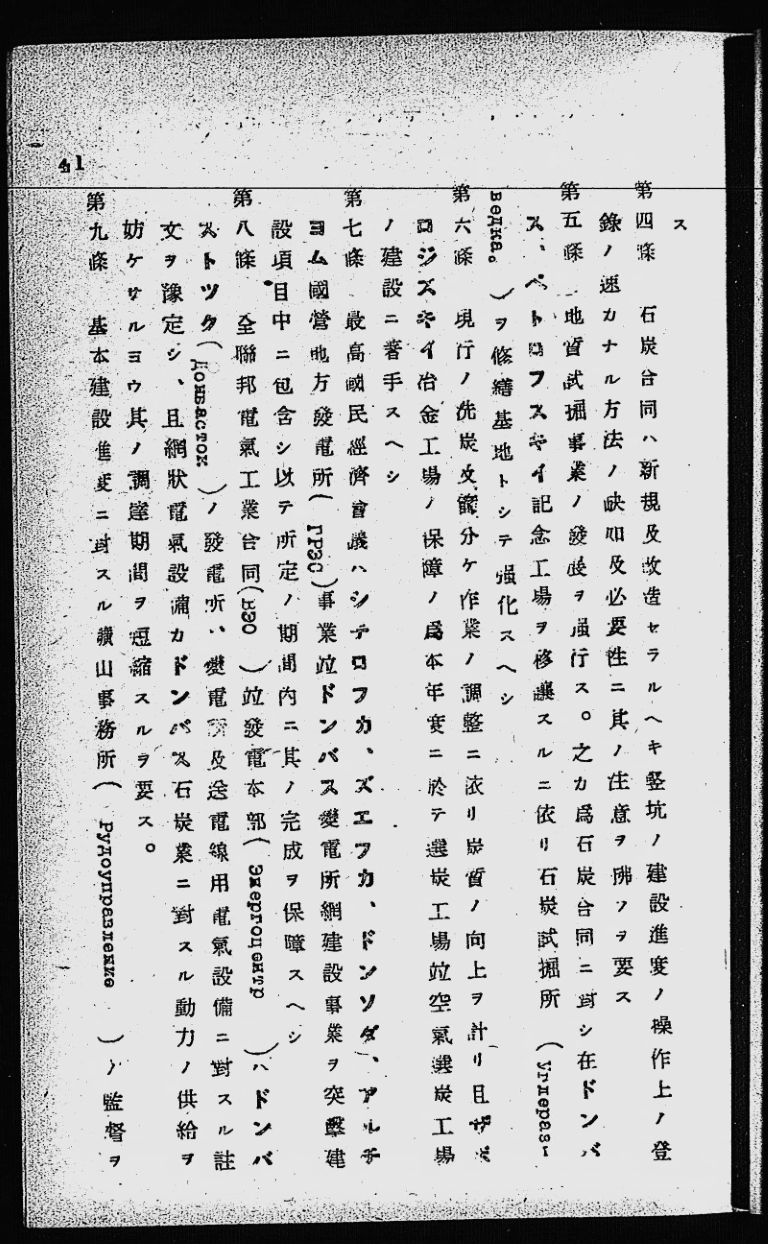 ス
第四條　石炭合同ハ新規及改造セラルヘキ竪坑ノ建設進度ノ操作上ノ登
錄ノ速カナル方法ノ缺如及必要性ニ其ノ注意ヲ拂フヲ要ス
第五條　地質試掘事業ノ發展ヲ强行ス。之カ爲石炭合同ニ對シ在ドンバ
ス、ペトロフスキイ記念工場ヲ移讓スルニ依リ石炭試掘所（Углераз-
ведка。）ヲ修繕基地トシテ强化スヘシ
第六條　現行ノ洗炭及篩分ケ作業ノ調整ニ依リ炭質ノ向上ヲ計リ且ザポ
ロジスキイ冶金工場ノ保障ノ爲本年度ニ於テ選炭工場竝空氣選炭工場
ノ建設ニ著手スヘシ
第七條　最高國民經濟會議ハシテロフカ、ズエフカ、ドンソダ、アルチ
ヨム國營地方發電所（ГРЭС）事業竝ドンバス變電所網建設事業ヲ突擊建
設項目中ニ包含シ以テ所定ノ期間內ニ其ノ完成ヲ保障スヘシ
第八條　全聯邦電氣工業合同（ВЭО）竝發電本部（Энергоцентр）ハドンバ
ストツク（Донбасток）ノ發電所、變電所及送電線用電氣設備ニ對スル註
文ヲ豫定シ、且網狀電氣設備カドンバス石炭業ニ對スル動力ノ供給ヲ
妨ケサルヨウ其ノ調達期間ヲ短縮スルヲ要ス。
第九條　基本建設進度ニ對スル鑛山事務所（Рудоуправление）ノ監督ヲ
41